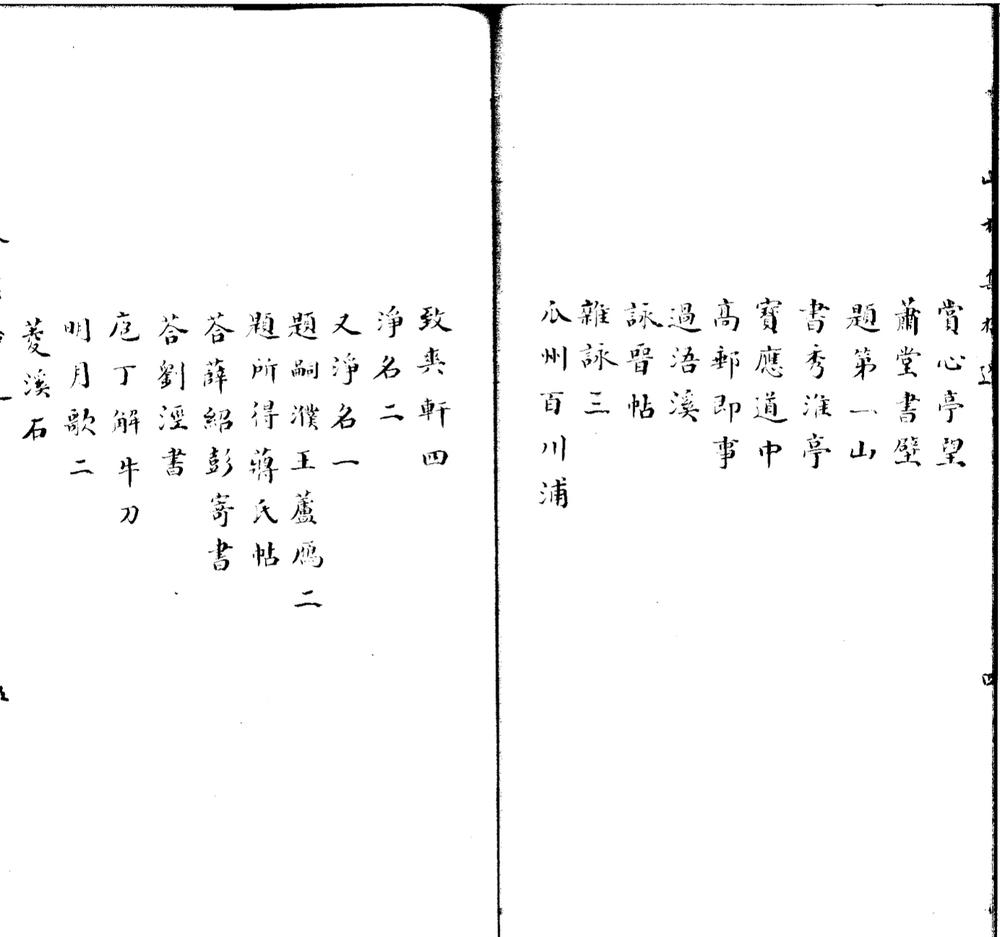 賞心亭望
蕭堂書壁
題第一山
書秀淮亭
寶應道中
高郵即事
過浯溪
詠晉帖
雜詠三
瓜州百川浦
四
致爽軒四
淨名二
又淨名一
題嗣濮王蘆鴈二
題所得蔣氏帖
荅薛紹彭寄書
荅劉涇書
庖丁解牛刀
明月歌二
菱溪石